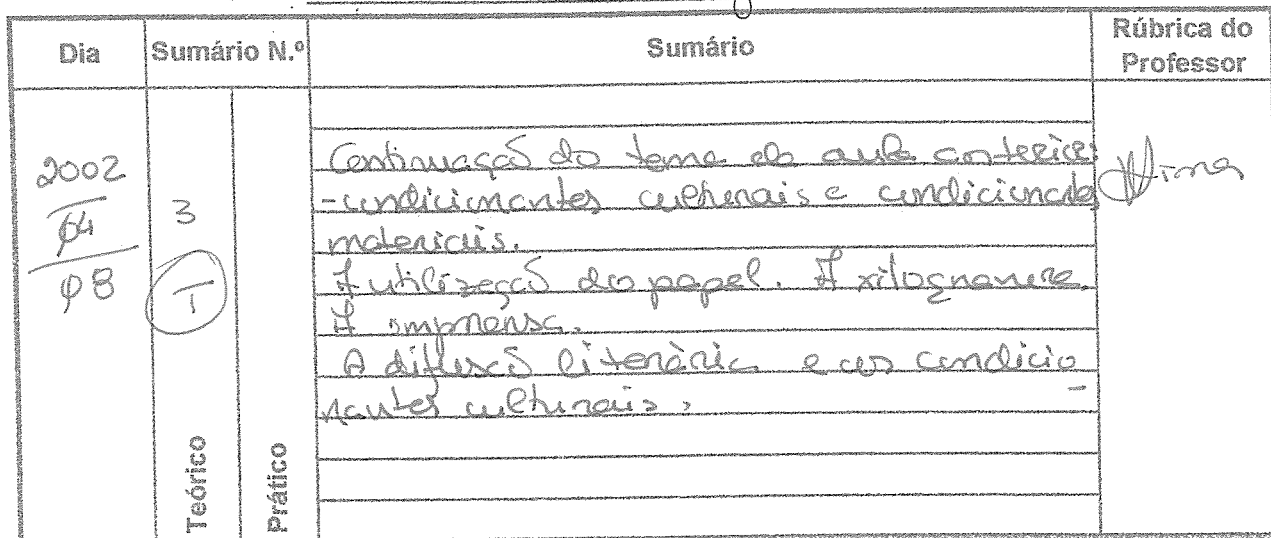 Dia Sumário N.º Sumário Rúbrica do Professor
2002
04
08
3
T
Continuação do tema da aula anterior:
- condicionantes culturais e condicionantes
materiais.
A utilização do papel. A xilogravura.
A imprensa.
A difusão literária e as condicio-
nantes culturais.
Teórico
Prático